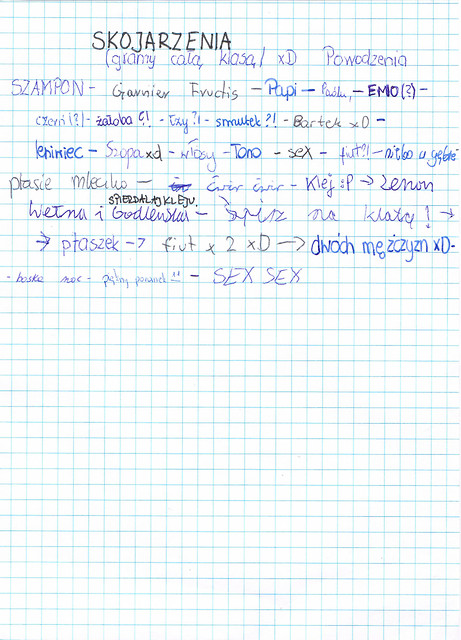 SKOJARZENIA
(gramy całą klasą) xD Powodzenia
SZAMPON - Garnier Fructis - Papi - - EMO(?) -
czerń(?) - żałoba?! - łzy?! - smutek?! - Bartek xD -
leniwiec - Szopa xd - włosy - Tono - sex - fiut?! - niebo w gębie
ptasie mleczko - ćwir ćwir - Klej :P → Zenon
SPIERDALAJ KLEJU.
Wełna i Godlewska - Śpisz na klatę! →
→ ptaszek → fiut x 2 xD → dwóch mężczyzn xD -
- boska noc - poranek !! - SEX SEX